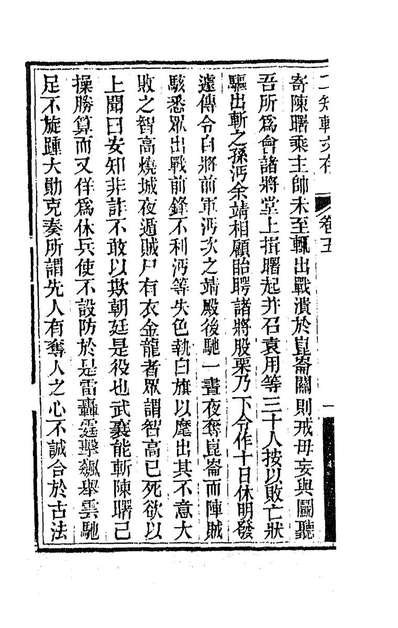 二知軒文存 卷五 一
寄陳曙乘主帥未至輒出戰潰於崑崙關則戒毋妄與鬭聽
吾所爲會諸將堂上揖曙起幷召袁用等三十人按以敗亡狀
驅出斬之孫沔余靖相顧眙𦗟諸將股栗乃下令作十日休明發
遽傳令自將前軍沔次之靖殿後馳一晝夜奪崑崙而陣賊
駭悉眾出戰前鋒不利沔等失色執白旗以麾出其不意大
敗之智高燒城夜遁賊尸有衣金龍者眾謂智高已死欲以
上聞曰安知非詐不敢以欺朝廷是役也武襄能斬陳曙已
操勝算而又佯爲休兵使不設防於是雷轟霆擊飆舉雲馳
足不旋踵大勛克奏所謂先人有奪人之心不誠合於古法